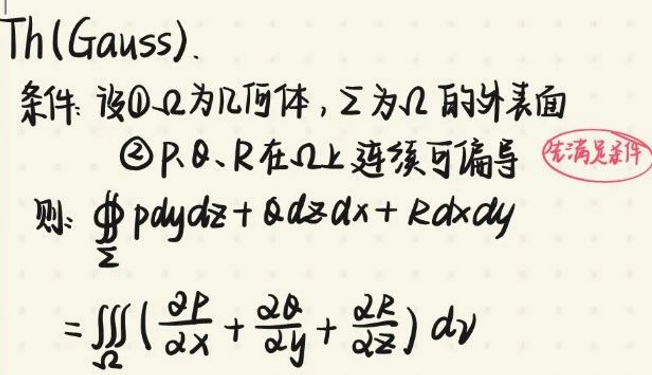 Th(Gauss).
条件: 设①Ω为几何体,Σ为Ω的外表面
②P、Q、R在Ω上连续可偏导 先满足条件
则: ∯_Σ Pdydz+Qdzdx+Rdxdy
=∭_Ω(∂P/∂x+∂Q/∂y+∂R/∂z)dv